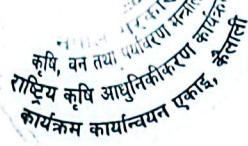 नेपाल सरकार
कृषि, वन तथा पर्यावरण मन्त्रालय
राष्ट्रिय कृषि आधुनिकीकरण कार्यक्रम
कार्यक्रम कार्यान्वयन एकाइ, कैलाली